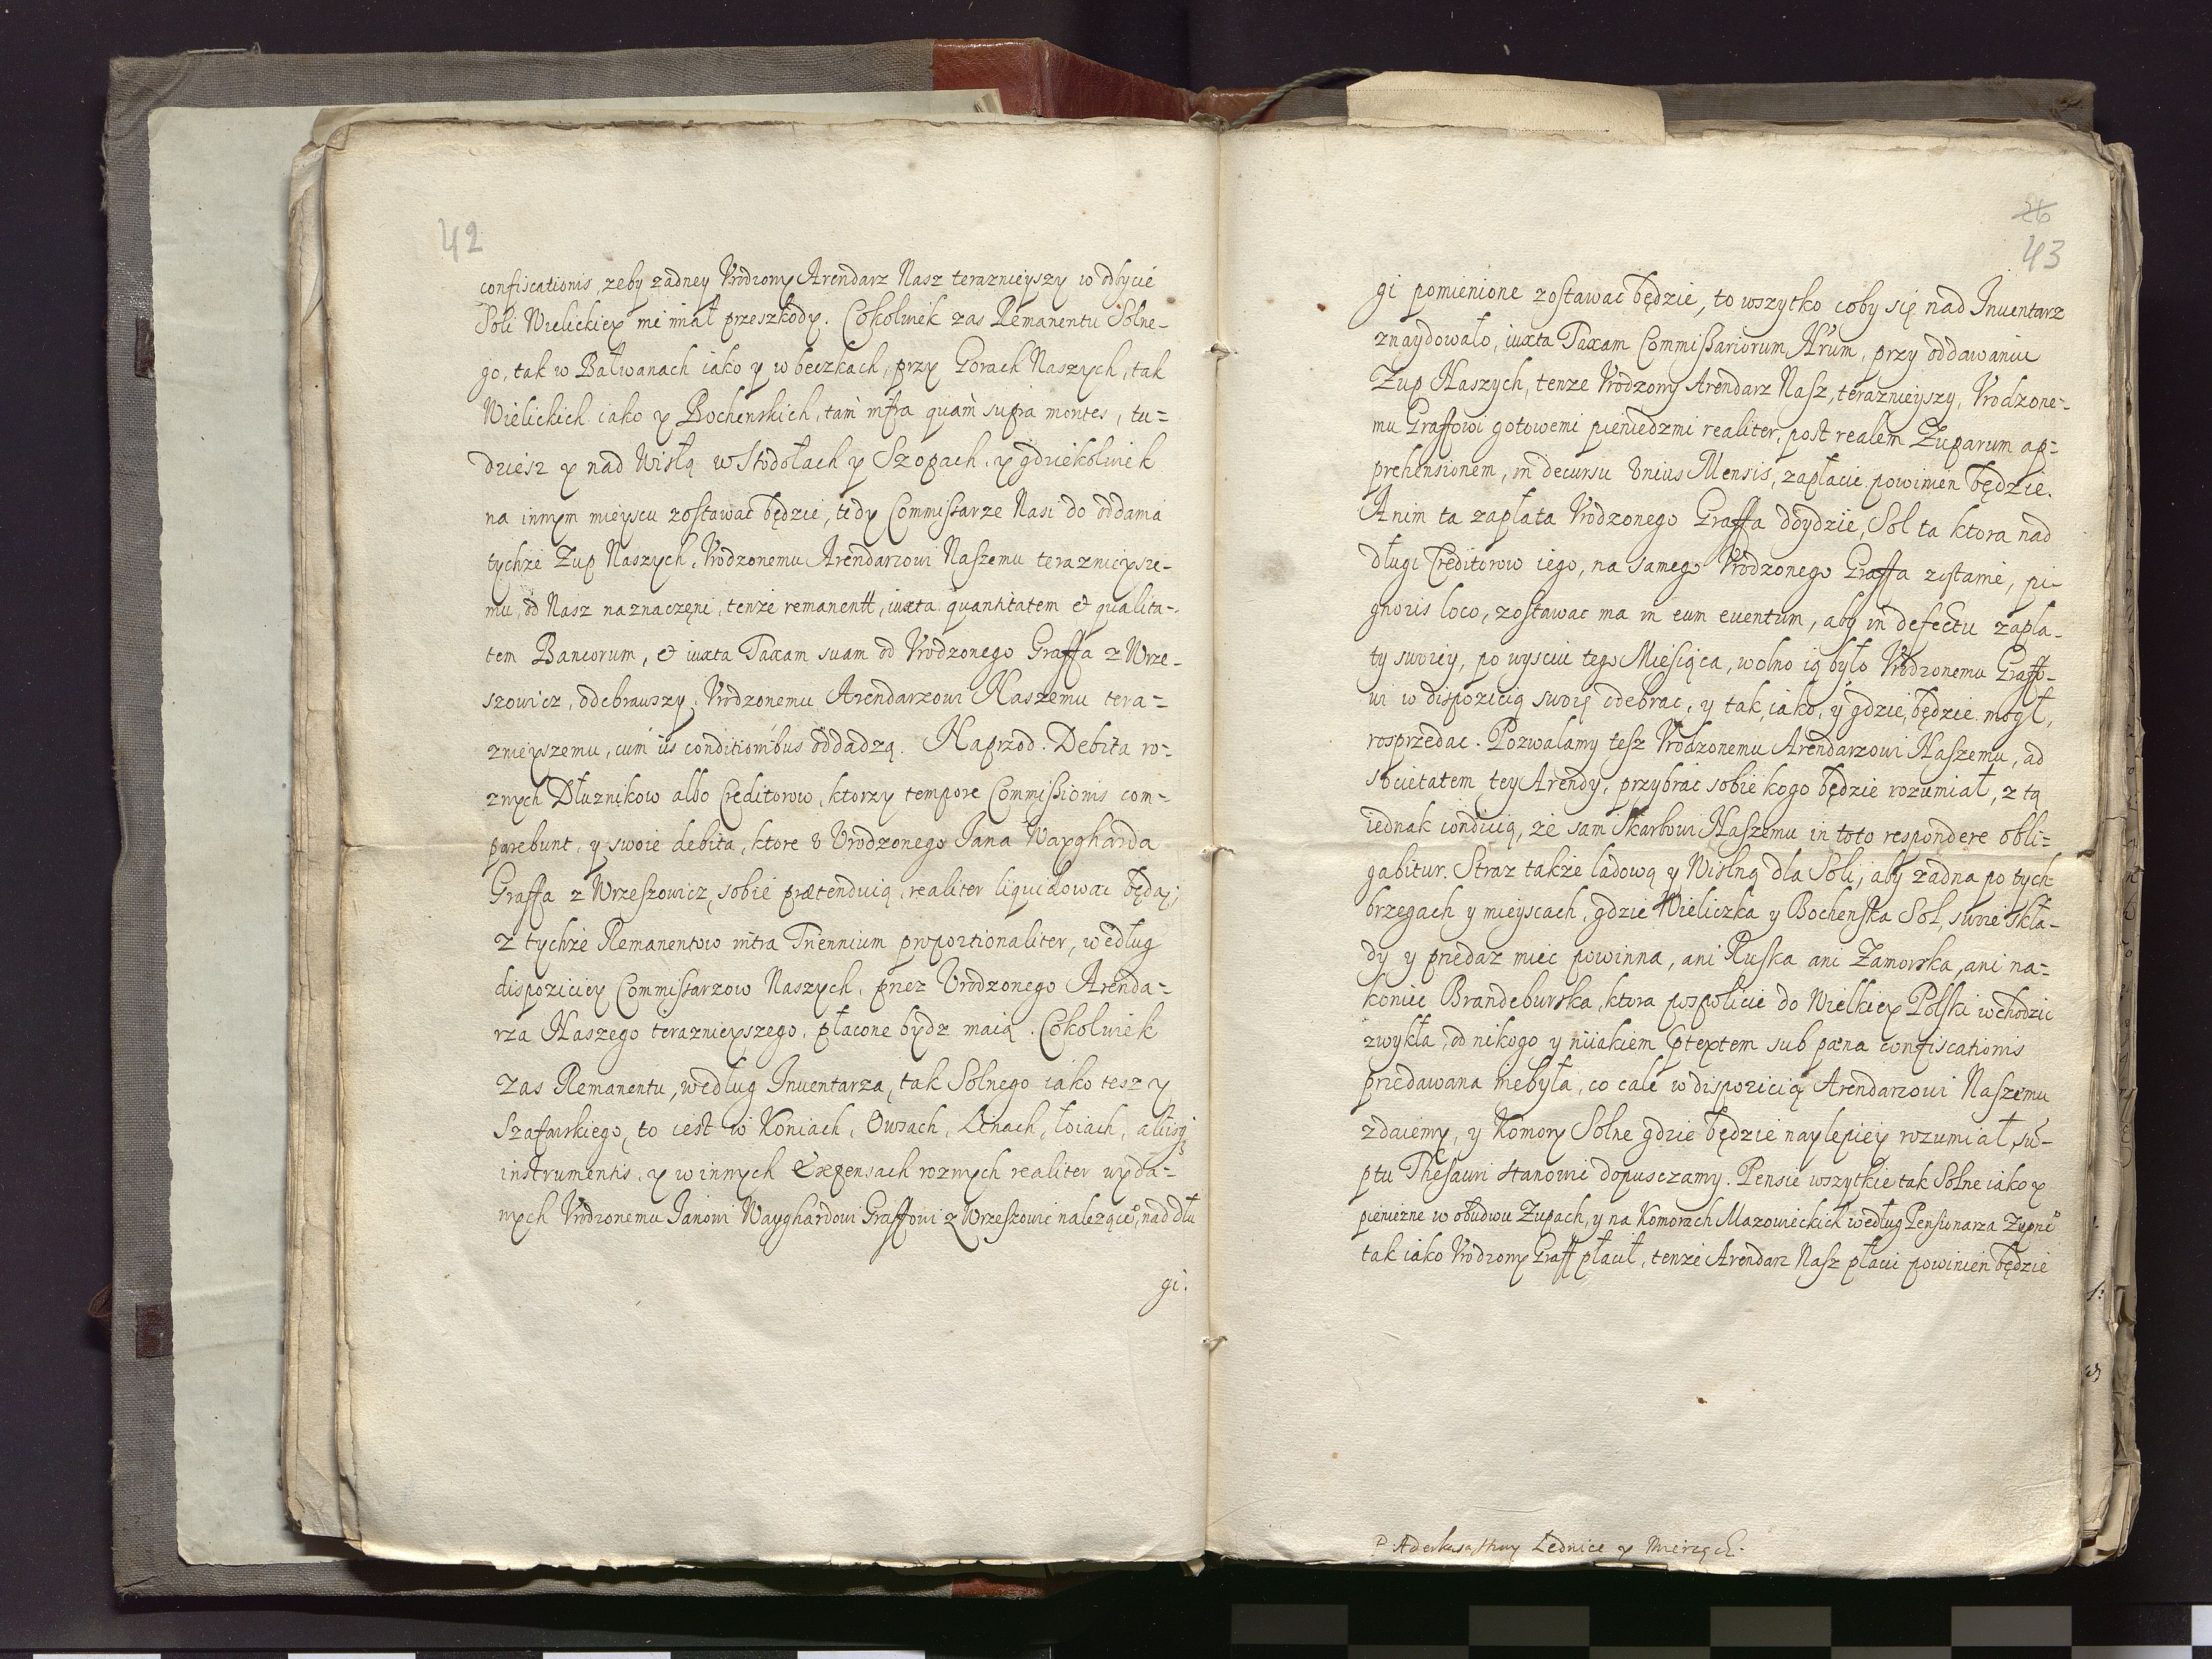 42
confiscationis, zeby zadney Vrodzony Arendarz Nasz terazneyszy w odbycié
Soli Wielickiey nie miał przeszkody. Cokolwiek zas Remanentu Solne-
go, tak w Bałwanach iako y w beczkach, przy Gorach Naszych, tak
Wielickich iako y Bochenskich, tam infra quam supra montes, tu=
dziesz y nad Wisłą w Stodołach y Szopach, y gdziekolwiek
na innym mieyscu zostawać będzie, tedy Commissarze Nasi do oddania
tychże Zup Naszych, Vrodzonemu Arendarzowi Naszemu teraznieysze-
mu, od Nasz naznaczęni, tenże remanentt, iuxta quantitatem et qualita-
tem Bancorum, et iuxta Taxam suam od Vrodzonego Graffa z Wrze-
szowicz, odebrawszy, Vrodzonemu Arendarzowi Naszemu tera=
znieyszemu, cum iis conditionibus oddadzą. Naprzod. Debita ro-
znych Dłuznikow albo Creditorow, ktorzy tempore Commissionis com-
parebunt, y swoie debita, ktore v Vrodzonego Iana Wayghárda
Graffa z Wrzeszowicz, sobie prætenduią, realiter liquidować będą;
z tychże Remanentow intra Triennium proportionaliter, według
dispoziciey Commissarzow Naszych, przez Vrodzonego Arenda-
rza Naszego teraznieyszego, płacone bydz maią. Cokolwiek
zas Remanentu, według Inuentarza, tak Solnego iako tesz y
Szafarskiego, to iest w Koniach, Owsach, Linach, łoiach, aliisq
instrumentis, y w innych Expensach roznych realiter wyda-
nych Vrodzonemu Janowi Wayghardowi Graffowi z Wrzeszowic nalezące, nad dłu
gi.
26
43
gi pomienione zostawać będzie, to wszytko coby się nad Inuentarz
znaydowało, iuxta Taxam Commissariorum Nrum, przy oddawaniu
Zup Naszych, tenze Vrodzony Arendarz Nasz, teraznieyszy, Vrodzone-
mu Graffowi gotowemi pieniedzmi realiter, post realem Zuparum ap-
prehensionem, in decursu vnius Mensis, zapłacic powinien będzie.
A nim ta zapłata Vrodzonego Graffa doydzie, Sol ta ktora nad
długi Creditorow iego, na samego Vrodzonego Graffa zostanie, pi-
gnoris loco, zostawac ma in eum euentum, aby in defectu zapła-
ty swoiey, po wysciu tego Miesiąca, wolno ią było Vrodzonemu Graffo-
wi w dispozicią swoię odebrac, y tak, iako, y gdzie, będzie mogł,
rosprzedac. Pozwalamy tesz Vrodzonemu Arendarzowi Naszemu, ad
societatem tey Arendy, przybrać sobie kogo będzie rozumiał, z tą
iednak condicią, że sam Skarbowi Naszemu in toto respondere obli=
gabitur. Straz także lądową y Wiślną dla Soli, aby zadna po tych
brzegach y mieyscach, gdzie Wieliczka y Bochenska Sol, swoie skła-
dy y przedaz miec powinna, ani Ruska ani Zamorska, ani na=
koniec Brandeburska, ktora pospolicie do Wielkiey Polski wchodzic
zwykła, od nikogo y niiakiem ptextem sub pæna confiscationis
przedawana niebyła, co cale w dispozicią Arendarzowi Naszemu
zdaiemy, y Komory Solne gdzie będzie naylepiey rozumiał, su-
ptu Thesauri stanowic dopusczamy. Pensie wszytkie tak Solne iako y
pieniezne w obudwu Zupach, y na Komorach Mazowieckich według Pensionarza Zupne
tak iako Vrodzony Graff płacił, tenże Arendarz Nasz płacic powinien będzie
Lednice y